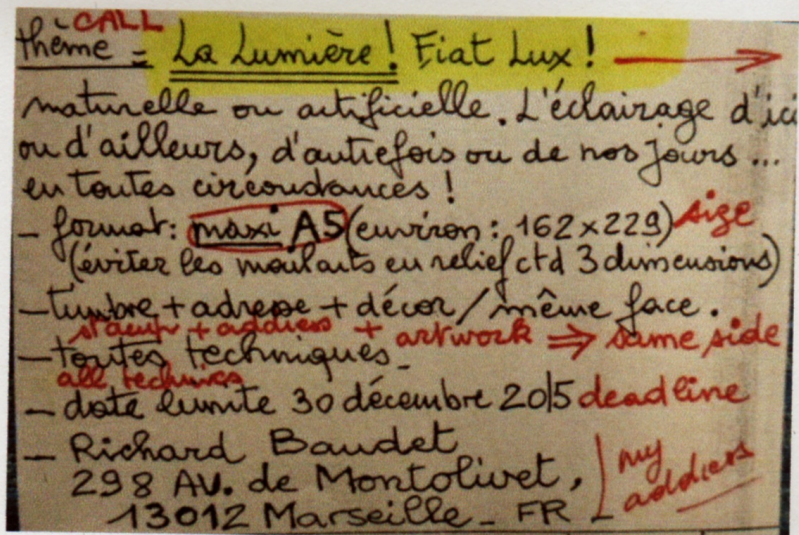 CALL
thème = La Lumière ! Fiat Lux !
naturelle ou artificielle. L'éclairage d'ici
ou d'ailleurs, d'autrefois ou de nos jours ...
en toutes circonstances !
- format : maxi A5 (environ : 162x229) size
(éviter les montants en relief ctd 3 dimensions)
- timbre + adresse + décor / même face.
stamp + address + artwork ⇒ same side
- toutes techniques -
all technics
- date limite 30 décembre 2015 deadline
- Richard Baudet
298 AV. de Montolivet,
13012 Marseille - FR -
my
address